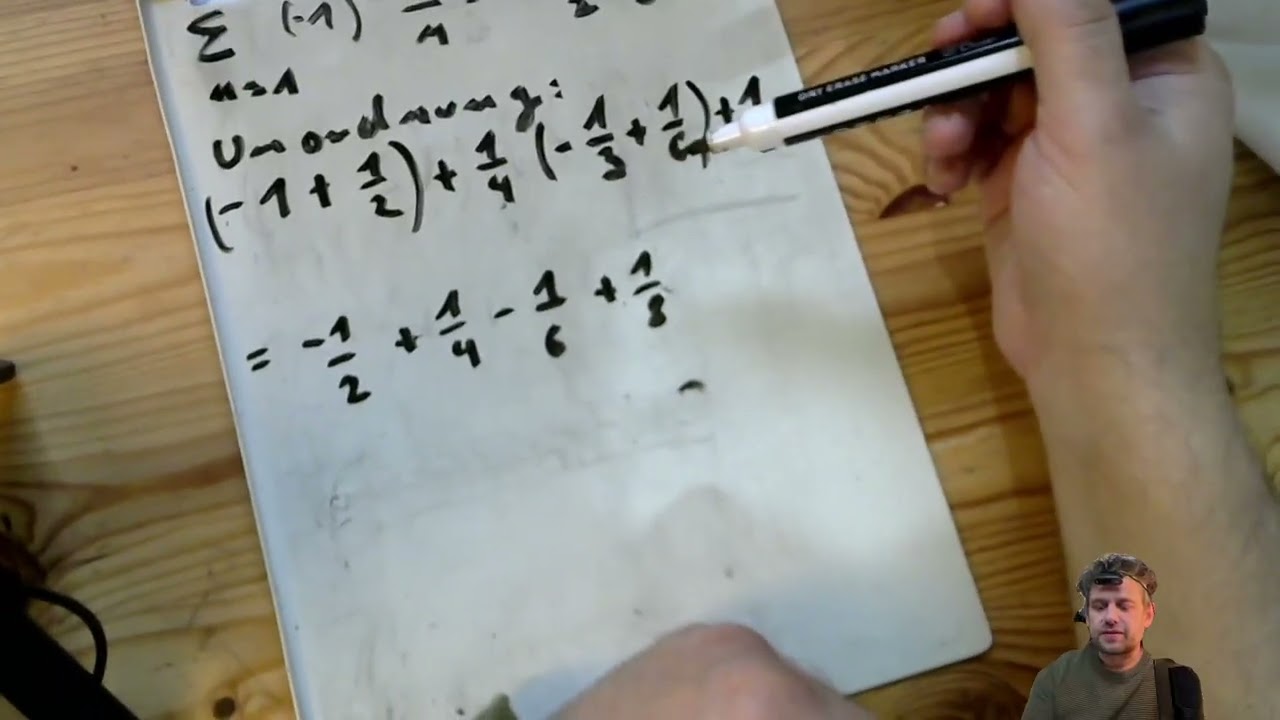 ∑ (-1) 1/n
n=1
Umordnung:
(-1 + 1/2) + 1/4 (-1/3 + 1/6) + 1
= -1/2 + 1/4 - 1/6 + 1/8
DRY ERASE MARKER